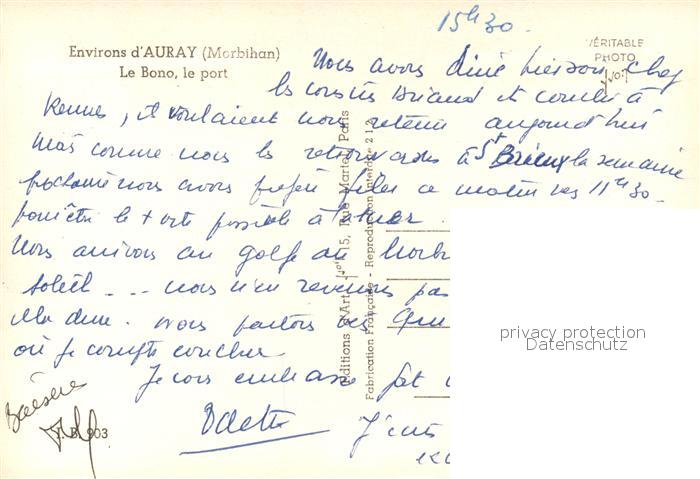 15h30.
Environs d'AURAY (Morbihan)
Le Bono, le port
VÉRITABLE
PHOTO
Nous avons diné hier soir chez
les cousins Briand et couché à
Rennes, ils voulaient nous retenir aujourd'hui
Mais comme nous les retrouvons à St Brieux la semaine
prochaine nous avons préféré filer ce matin vers 11h30-
pour être le + vite possible à la mer.
Nous arrivons au golfe du Morb
soleil --- nous n'en revenons pas
Madine. nous partons vers Qui
où je compte coucher
Je vous embrasse fort
Odette
J'écris
Baisers
J.B. 903
Editions d'Art "Jos" 15, Rue Martel, Paris
Fabrication Française - Reproduction Interdite 212
privacy protection
Datenschutz